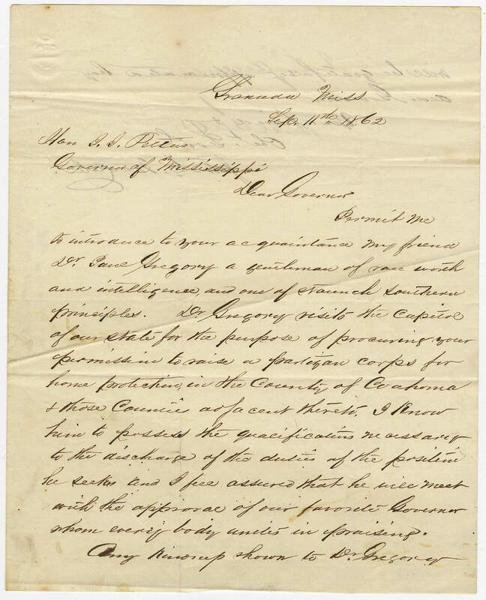 Grenada Miss.
Sep. 11th 1862
Hon J. J. Pettus
Governor of Mississippi
Dear Governor
Permit me
to introduce to your acquaintance my friend
Dr. Gregory a gentleman of rare worth
and intelligence and one of staunch Southern
principles. Dr Gregory visits the Capitol
of our state for the purpose of procuring your
permission to raise a partizan corps for
home protection, in the County of Coahoma
& those Counties adjacent thereto, I know
him to possess the qualifications necessary
to the discharge of the duties of the position
he seeks and I feel assured that he will meet
with the approval of our favorite Governor
whom every body unites in praising.
Any kindness shown to Dr Gregory